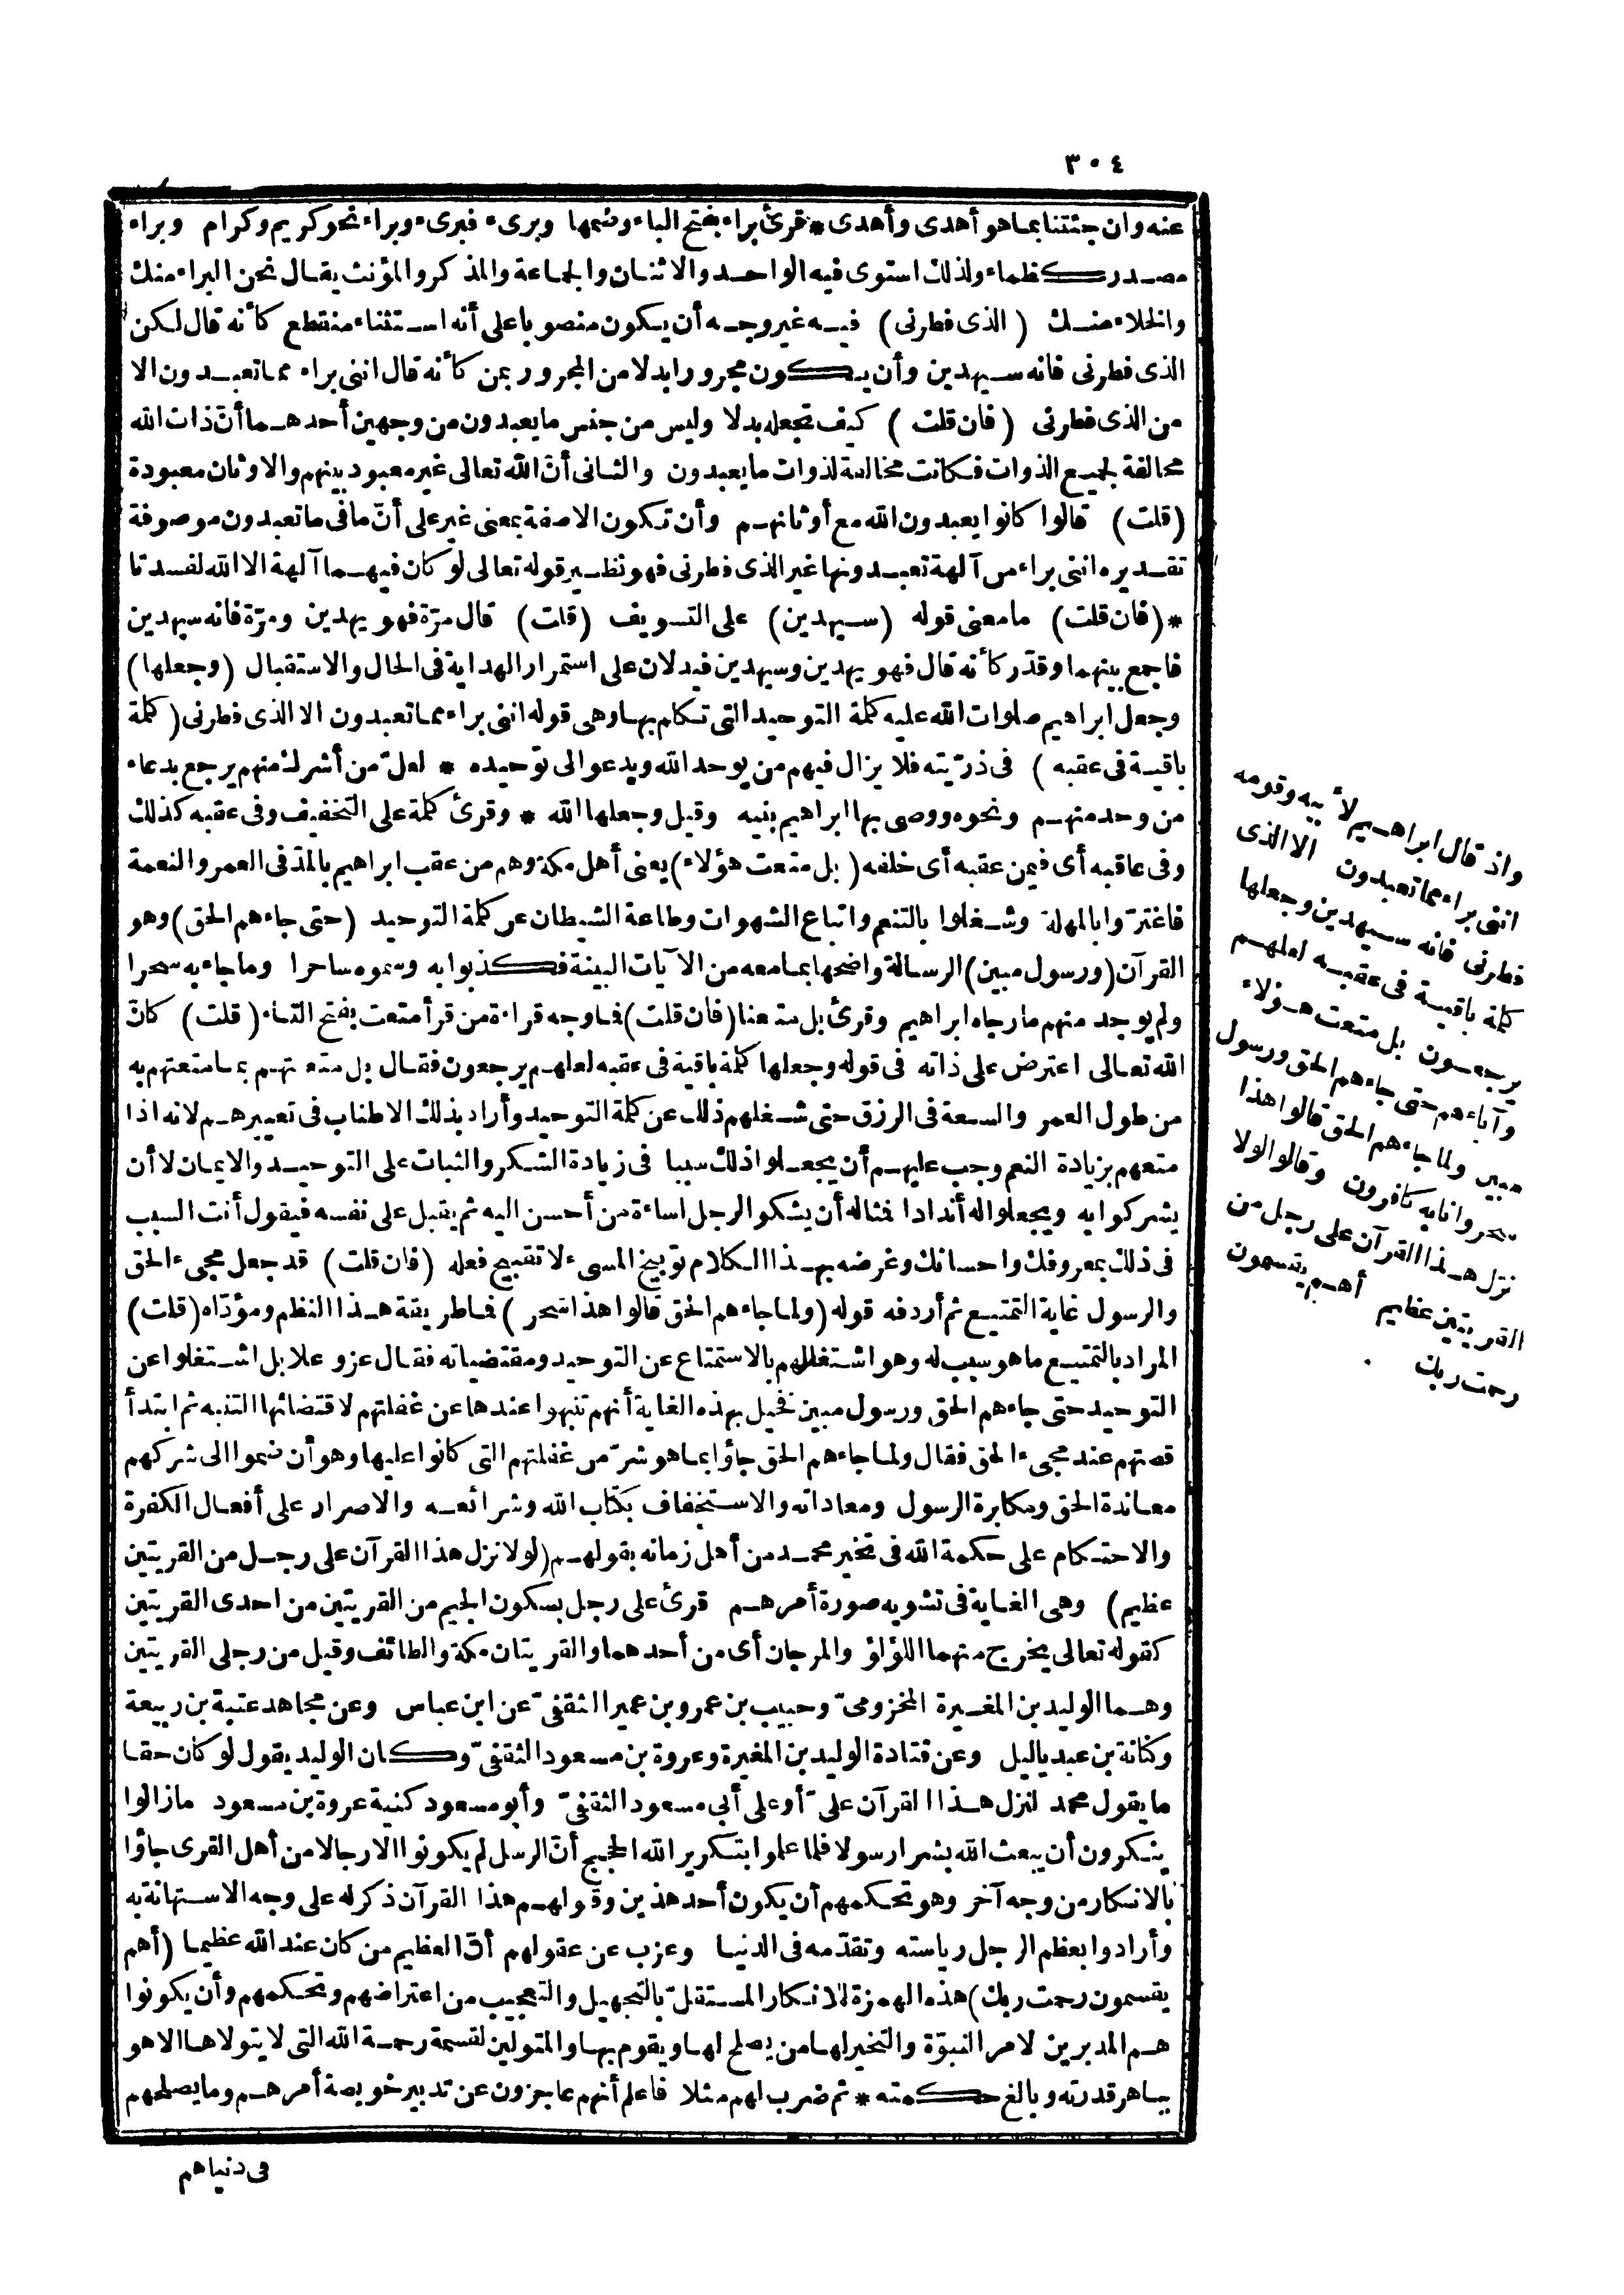 ٣٠٤
عنه وان جئتنا بما هو أهدى وأهدى * قرئ براء بفتح الباء وضمها وبرىء فبرىء وبراء نحو كريم وكرام وبراء
مصدر كظماء ولذلك استوى فيه الواحد والاثنان والجماعة والمذكر والمؤنث يقال نحن البراء منك
والخلاء منك (الذى فطرنى) فيه غير وجه أن يكون منصوبا على أنه استثناء منقطع كأنه قال لكن
الذى فطرنى فانه سيهدين وأن يكون مجرورا بدلا من المجرور بمن كأنه قال اننى براء مما تعبدون الا
من الذى فطرنى (فان قلت) كيف تجعله بدلا وليس من جنس ما يعبدون من وجهين أحدهما أنّ ذات الله
مخالفة لجميع الذوات فكانت مخالفة لذوات ما يعبدون والثانى أنّ الله تعالى غير معبود بينهم والاوثان معبودة
(قلت) قالوا كانوا يعبدون الله مع أوثانهم وأن تكون الا صفة بمعنى غير على أنّ ما فى ما تعبدون موصوفة
تقديره اننى براء من آلهة تعبدونها غير الذى فطرنى فهو نظير قوله تعالى لو كان فيهما آلهة الا الله لفسدتا
* (فان قلت) ما معنى قوله (سيهدين) على التسويف (قلت) قال مرّة فهو يهدين ومرّة فانه سيهدين
فاجمع بينهما وقدّر كأنه قال فهو يهدين وسيهدين فيدلان على استمرار الهداية فى الحال والاستقبال (وجعلها)
وجعل ابراهيم صلوات الله عليه كلمة التوحيد التى تكلم بها وهى قوله اننى براء مما تعبدون الا الذى فطرنى (كلمة
باقية فى عقبه) فى ذرّيته فلا يزال فيهم من يوحد الله ويدعو الى توحيده * لعلّ من أشرك منهم يرجع بدعاء
من وحد منهم ونحوه ووصى بها ابراهيم بنيه وقيل وجعلها الله * وقرئ كلمة على التخفيف وفى عقبه كذلك
وفى عاقبه أى فيمن عقبه أى خلفه (بل متعت هؤلاء) يعنى أهل مكة وهم من عقب ابراهيم بالمدّ فى العمر والنعمة
فاغترّوا بالمهلة وشغلوا بالتنعم واتباع الشهوات وطاعة الشيطان عن كلمة التوحيد (حتى جاءهم الحق) وهو
القرآن (ورسول مبين) الرسالة واضحها بما معه من الآيات البينة فكذبوا به وسموه ساحرا وما جاء به سحرا
ولم يوجد منهم ما رجاه ابراهيم وقرئ بل متعنا (فان قلت) فما وجه قراءة من قرأ متعت بفتح التاء (قلت) كانّ
الله تعالى اعترض على ذاته فى قوله وجعلها كلمة باقية فى عقبه لعلهم يرجعون فقال بل متعتهم بما متعتهم به
من طول العمر والسعة فى الرزق حتى شغلهم ذلك عن كلمة التوحيد وأراد بذلك الاطناب فى تعييرهم لانه اذا
متعهم بزيادة النعم وجب عليهم أن يجعلوا ذلك سببا فى زيادة الشكر والثبات على التوحيد والايمان لا أن
يشركوا به ويجعلوا له أندادا فمثاله أن يشكو الرجل اساءة من أحسن اليه ثم يقبل على نفسه فيقول أنت السبب
فى ذلك بمعروفك واحسانك وغرضه بهذا الكلام توبيخ المسىء لا تقبيح فعله (فان قلت) قد جعل مجىء الحق
والرسول غاية التمتيع ثم أردفه قوله (ولما جاءهم الحق قالوا هذا سحر) فما طريقة هذا النظم ومؤدّاه (قلت)
المراد بالتمتيع ما هو سبب له وهو اشتغالهم بالاستمتاع عن التوحيد ومقتضياته فقال عز وعلا بل اشتغلوا عن
التوحيد حتى جاءهم الحق ورسول مبين فخيل بهذه الغاية أنهم تنبهوا عندها عن غفلتهم لاقتضائها التنبه ثم ابتدأ
قصتهم عند مجىء الحق فقال ولما جاءهم الحق جاؤا بما هو شرّ من غفلتهم التى كانوا عليها وهو أن ضموا الى شركهم
معاندة الحق ومكابرة الرسول ومعاداته والاستخفاف بكتاب الله وشرائعه والاصرار على أفعال الكفرة
والاحتكام على حكمة الله فى تخير محمد من أهل زمانه بقولهم (لولا نزل هذا القرآن على رجل من القريتين
عظيم) وهى الغاية فى تشويه صورة أمرهم قرئ على رجل بسكون الجيم من القريتين من احدى القريتين
كقوله تعالى يخرج منهما اللؤلؤ والمرجان أى من أحدهما والقريتان مكة والطائف وقيل من رجلى القريتين
وهما الوليد بن المغيرة المخزومىّ وحبيب بن عمرو بن عمير الثقفىّ عن ابن عباس وعن مجاهد عتبة بن ربيعة
وكنانة بن عبد ياليل وعن قتادة الوليد بن المغيرة وعروة بن مسعود الثقفىّ وكان الوليد يقول لو كان حقا
ما يقول محمد لنزل هذا القرآن علىّ أو على أبى مسعود الثقفىّ وأبو مسعود كنية عروة بن مسعود ما زالوا
ينكرون أن يبعث الله بشرا رسولا فلما علموا بتكرير الله الحجج أنّ الرسل لم يكونوا الا رجالا من أهل القرى جاؤا
بالانكار من وجه آخر وهو تحكمهم أن يكون أحد هذين وقولهم هذا القرآن ذكر له على وجه الاستهانة به
وأرادوا بعظم الرجل رياسته وتقدّمه فى الدنيا وعزب عن عقولهم أنّ العظيم من كان عند الله عظيما (أهم
يقسمون رحمت ربك) هذه الهمزة للانكار المستقلّ بالتجهيل والتعجيب من اعتراضهم وتحكمهم وأن يكونوا
هم المدبرين لامر النبوّة والتخير لها من يصلح لها ويقوم بها والمتولين لقسمة رحمة الله التى لا يتولاها الا هو
بباهر قدرته وبالغ حكمته * ثم ضرب لهم مثلا فاعلم أنهم عاجزون عن تدبير خويصة أمرهم وما يصلحهم
فى دنياهم
واذ قال ابراهيم لأبيه وقومه
اننى براء مما تعبدون الا الذى
فطرنى فانه سيهدين وجعلها
كلمة باقية فى عقبه لعلهم
يرجعون بل متعت هؤلاء
وآباءهم حتى جاءهم الحق ورسول
مبين ولما جاءهم الحق قالوا هذا
سحر وانا به كافرون وقالوا لولا
نزل هذا القرآن على رجل من
القريتين عظيم أهم يقسمون
رحمت ربك